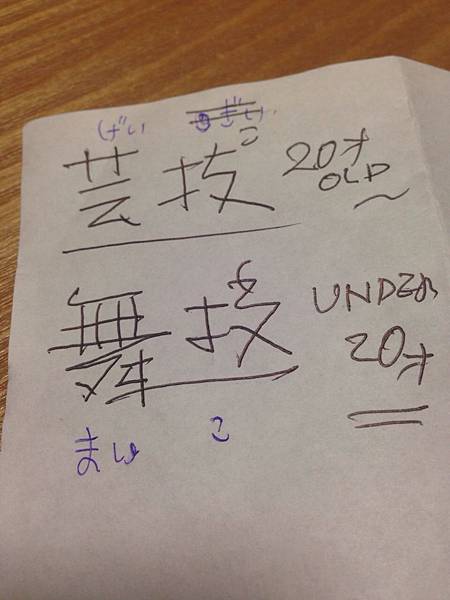 げい こ
芸技 20才
OLD ~
舞技 UNDER
20才
まい こ